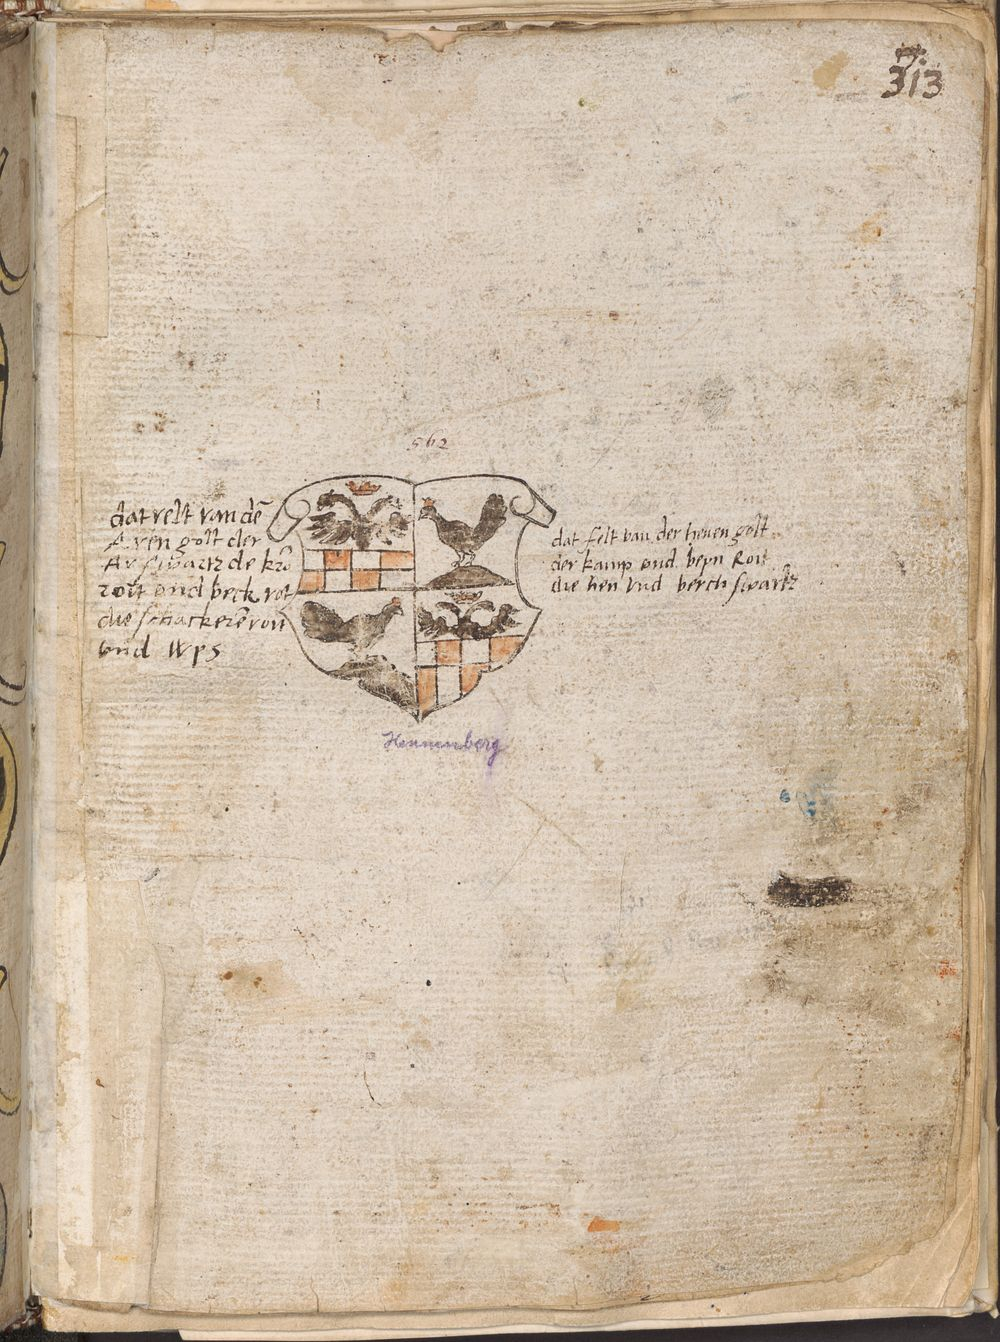 313
562
dat velt van dē
Aren golt der
Ar swartz de krō
rott vnd beck rot
die schackerē rott
vnd wys
dat felt van der hennen golt
der kamp vnd beyn Rott
die hen vnd berch swartz
Hennenberg